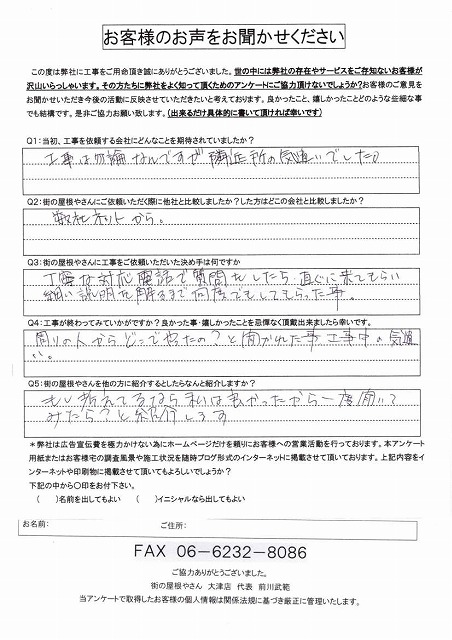 お客様のお声をお聞かせください
この度は弊社に工事をご用命頂き誠にありがとうございました。世の中には弊社の存在やサービスをご存知ないお客様が
沢山いらっしゃいます。その方たちに弊社をよく知って頂くためのアンケートにご協力頂けないでしょうか?お客様のご意見を
お聞かせいただき今後の活動に反映させていただきたいと考えております。良かったこと、嬉しかったことどのような些細な事
でも結構です。是非ご協力お願い致します。(出来るだけ具体的に書いて頂ければ幸いです)
Q1:当初、工事を依頼する会社にどんなことを期待されていましたか?
工事は勿論なんですが隣近所の気遣いでした。
Q2:街の屋根やさんにご依頼いただく際に他社と比較しましたか?した方はどこの会社と比較しましたか?
ネットから。
Q3:街の屋根やさんに工事をご依頼いただいた決め手は何ですか
丁寧な対応 電話で質問をしたら、直ぐに来てもらい
細い説明を解るまで何度でもしてもらった事。
Q4:工事が終わってみていかがですか?良かった事・嬉しかったことを忌憚なく頂戴出来ましたら幸いです。
周りの人からどこでやったの?と聞かれた事 工事中の気遣
い。
Q5:街の屋根やさんを他の方に紹介するとしたらなんと紹介しますか?
もし考えてるなら まいは良かったから一度聞いて
みたら?と紹介します
*弊社は広告宣伝費を極力かけない為にホームページだけを頼りにお客様への営業活動を行っております。本アンケート
用紙またはお客様宅の調査風景や施工状況を随時ブログ形式のインターネットに掲載させて頂いております。上記内容をイ
ンターネットや印刷物に掲載させて頂いてもよろしいでしょうか?
下記の中から〇印をお付下さい。
( )名前を出してもよい ( )イニシャルなら出してもよい
お名前: ご住所:
FAX 06-6232-8086
ご協力ありがとうございました。
街の屋根やさん 大津店 代表 前川武範
当アンケートで取得したお客様の個人情報は関係法規に基づき厳正に管理いたします。